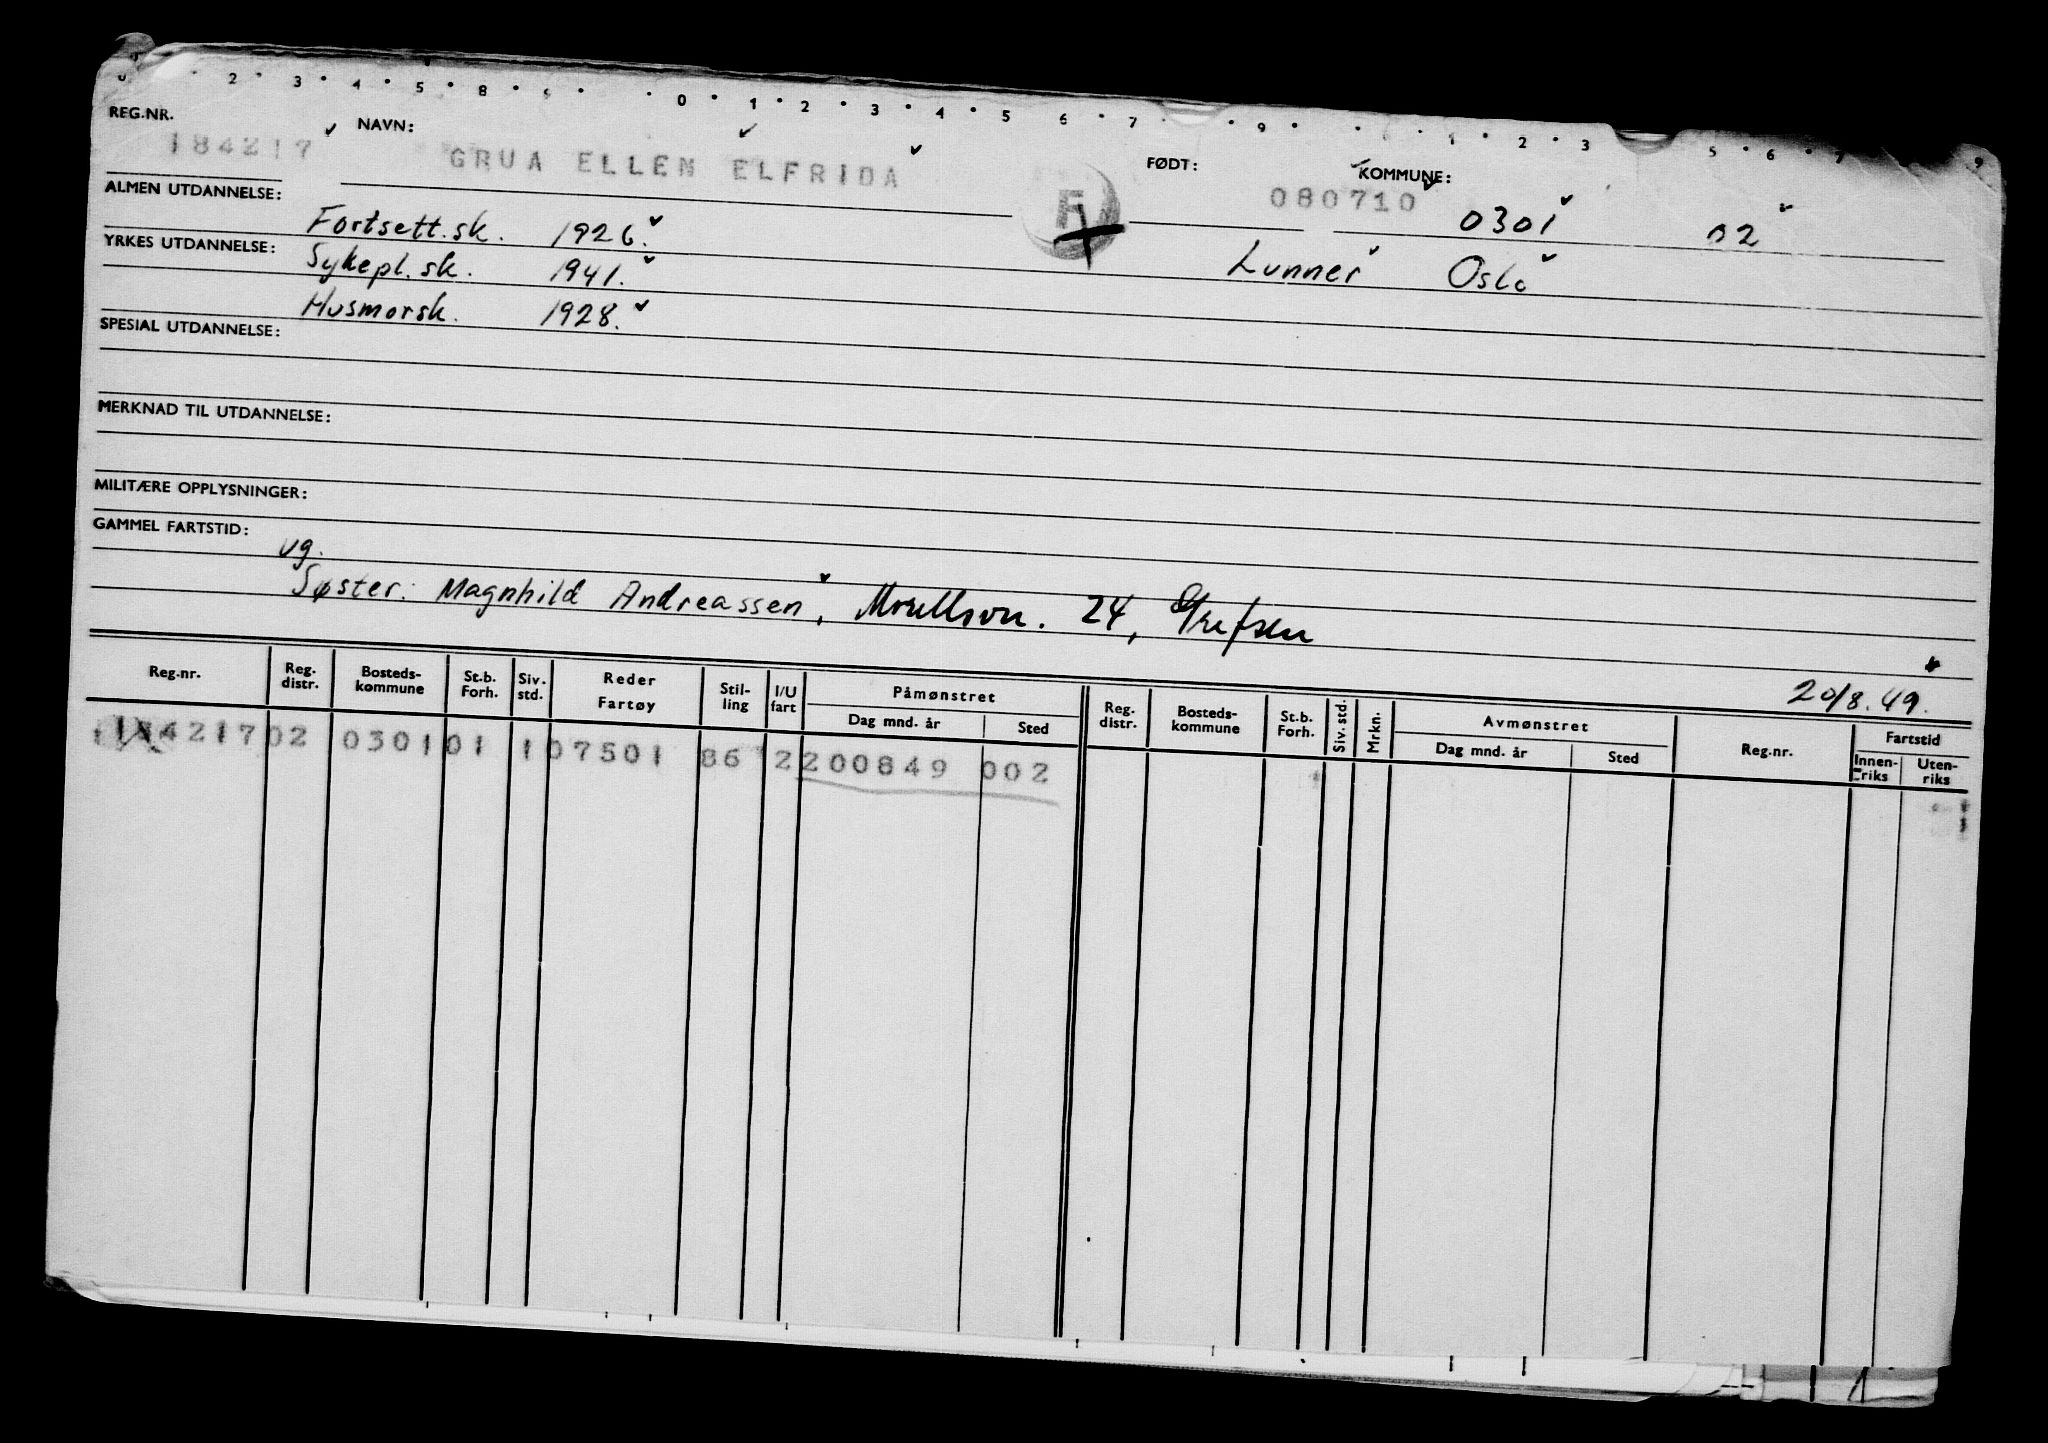 2 3 4 5 8 0 1 2 3 4 5 6 7 9 1 2 3 5 6 7 9
REG.NR. NAVN: FØDT: KOMMUNE:
184217 GRUA ELLEN ELFRIDA F 080710 0301 02
ALMEN UTDANNELSE: Fortsett.sk. 1926. Lunner Oslo
YRKES UTDANNELSE: Sykepl.sk. 1941.
Husmorsk. 1928.
SPESIAL UTDANNELSE:
MERKNAD TIL UTDANNELSE:
MILITÆRE OPPLYSNINGER:
GAMMEL FARTSTID: ug.
Søster: Magnhild Andreassen, 24, Grefsen
20/8.49.
Reg.nr. Reg. distr. Bosteds- kommune St.b. Forh. Siv. std. Reder Fartøy Stil- ling I/U fart Påmønstret Dag mnd. år Sted Reg. distr. Bosteds- kommune St.b. Forh. Siv. std. Mrkn. Avmønstret Dag mnd. år Sted Reg.nr. Fartstid Innen- riks Uten- riks
184217 02 0301 01 1 07501 86 2 200849 002